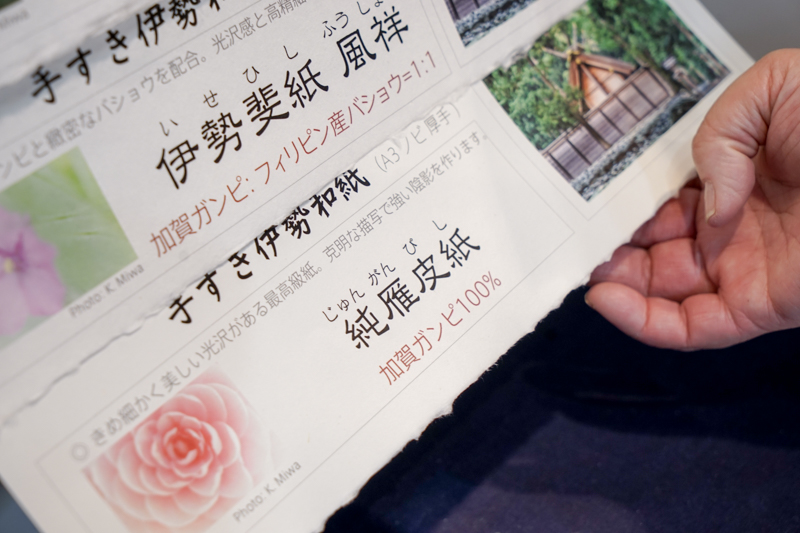 手すき伊勢和
ンピと緻密なバショウを配合。光沢感と高精細
いせひし ふうしょ
伊勢斐紙 風祥
加賀ガンピ：フィリピン産バショウ=1：1
Photo: K. Miwa
手すき伊勢和紙 (A3ノビ 厚手)
◎きめ細かく美しい光沢がある最高級紙。克明な描写で強い陰影を作ります。
じゅんがんぴし
純雁皮紙
加賀ガンピ100%
Photo: K. Miwa